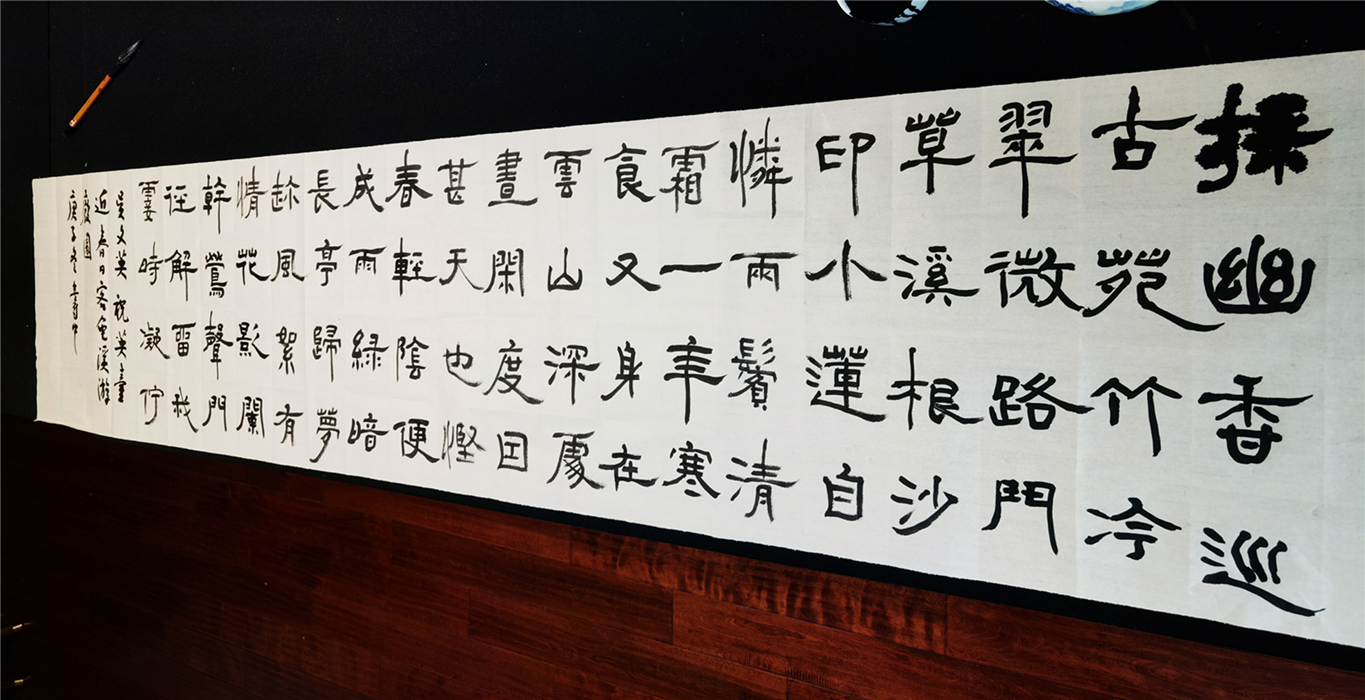 採幽香巡
古苑竹冷
翠微路鬥
草溪根沙
印小蓮自
憐兩鬢清
霜一年寒
食又身在
雲山深處
晝閑度因
甚天也慳
春輕陰便
成雨緑暗
長亭歸夢
趂風絮有
情花影闌
幹鶯聲門
徑解留我
霎時凝佇
吴文英祝英臺
近春日客龜溪游
廢園
庚子冬